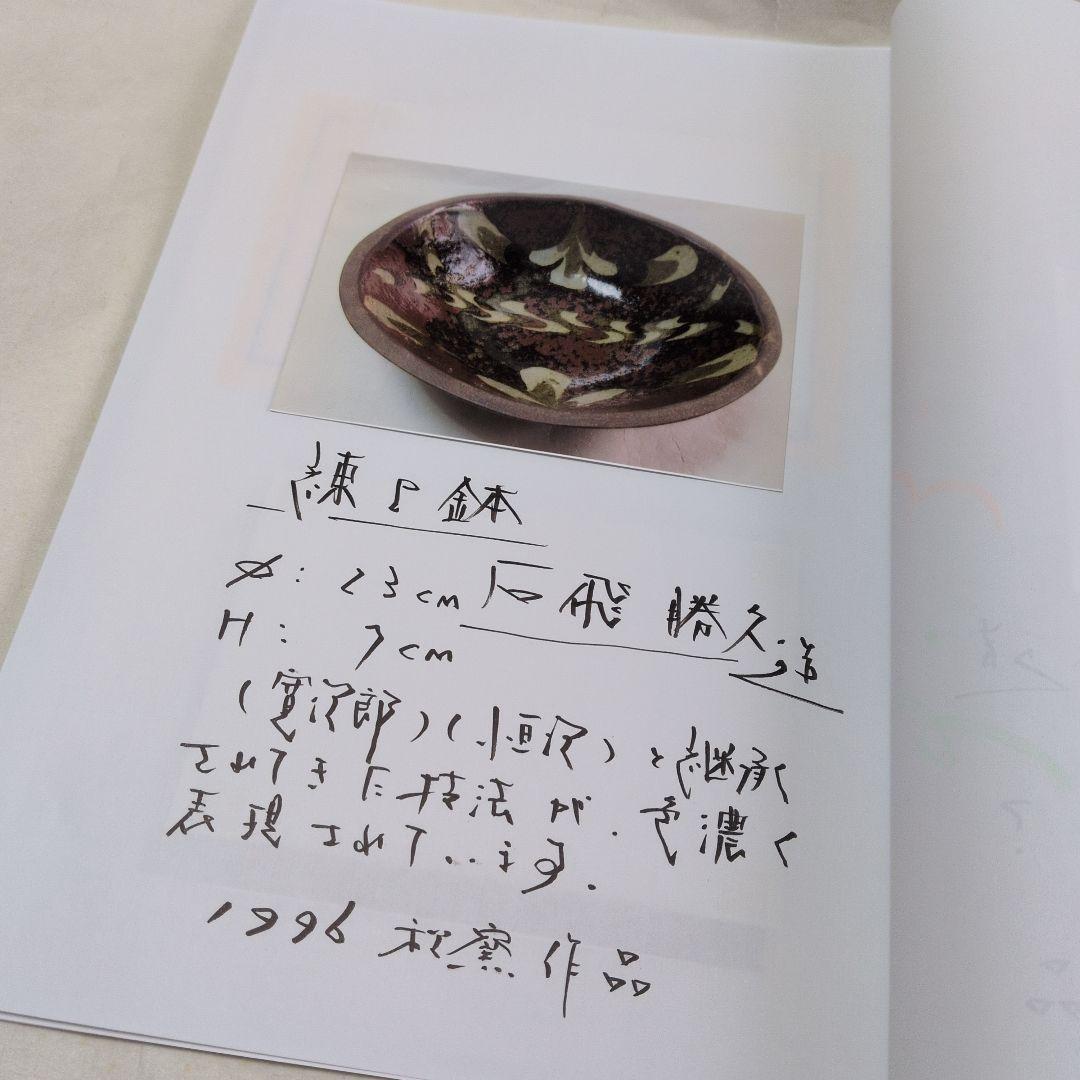 練上鉢
φ: 23cm 石飛 勝久造
H: 7cm
(寛次郎)(恒次)と継承
されてきた技法が、色濃く
表現されています.
1996 初窯作品